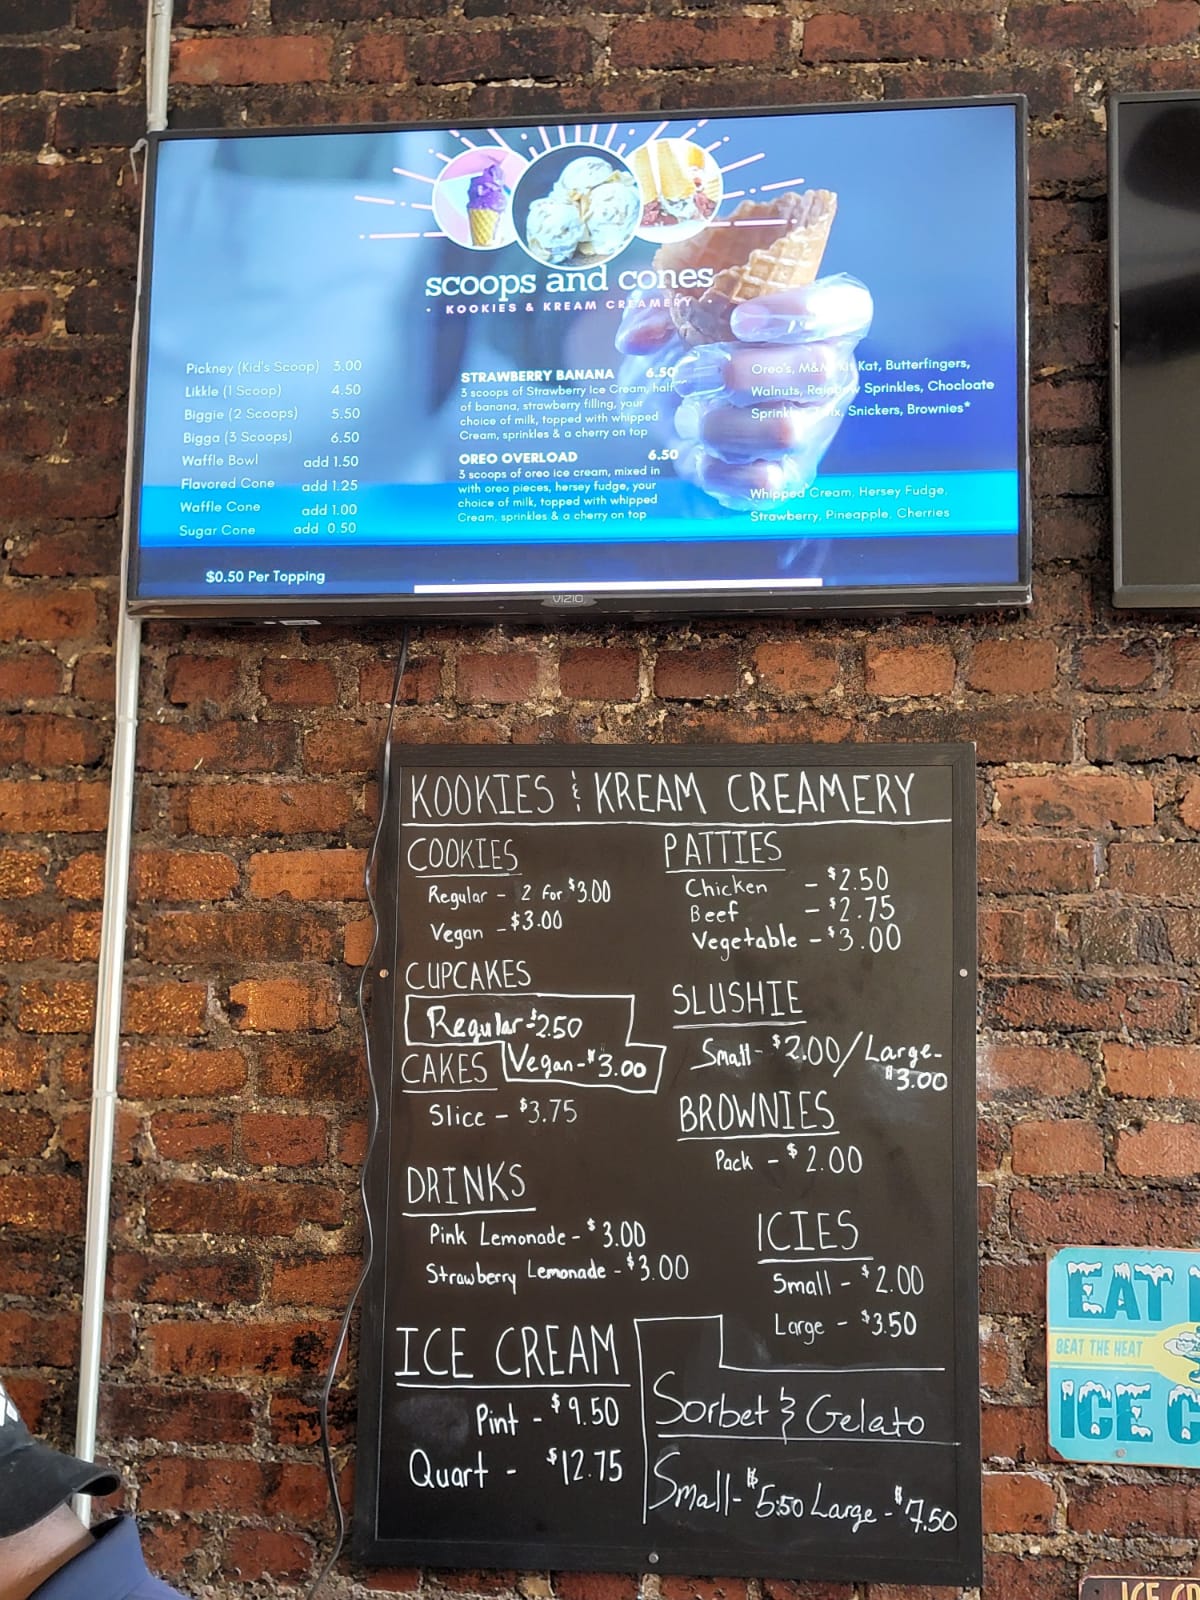 scoops and cones
• KOOKIES & KREAM CREAMERY •
Pickney (Kid's Scoop) 3.00
Likkle (1 Scoop) 4.50
Biggie (2 Scoops) 5.50
Bigga (3 Scoops) 6.50
Waffle Bowl add 1.50
Flavored Cone add 1.25
Waffle Cone add 1.00
Sugar Cone add 0.50
$0.50 Per Topping
STRAWBERRY BANANA 6.50
3 scoops of Strawberry Ice Cream, half
of banana, strawberry filling, your
choice of milk, topped with whipped
Cream, sprinkles & a cherry on top
OREO OVERLOAD 6.50
3 scoops of oreo ice cream, mixed in
with oreo pieces, hersey fudge, your
choice of milk, topped with whipped
Cream, sprinkles & a cherry on top
Oreo's, M&M, Kit Kat, Butterfingers,
Walnuts, Rainbow Sprinkles, Chocloate
Sprinkles, Twix, Snickers, Brownies*
Whipped Cream, Hersey Fudge,
Strawberry, Pineapple, Cherries
VIZIO
KOOKIES & KREAM CREAMERY
COOKIES
Regular - 2 for $3.00
Vegan - $3.00
CUPCAKES
Regular - $2.50
Vegan - $3.00
CAKES
Slice - $3.75
DRINKS
Pink Lemonade - $3.00
Strawberry Lemonade - $3.00
ICE CREAM
Pint - $9.50
Quart - $12.75
PATTIES
Chicken - $2.50
Beef - $2.75
Vegetable - $3.00
SLUSHIE
Small - $2.00/Large-
$3.00
BROWNIES
Pack - $2.00
ICIES
Small - $2.00
Large - $3.50
Sorbet & Gelato
Small - $5.50 Large - $7.50
EAT
BEAT THE HEAT
ICE C
ICE CR